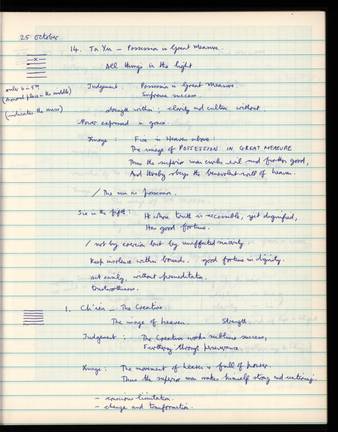 25 October
14. Ta Yu – Possession in Great Measure.
All things in the light
only 6 in 5th
(honored place in the middle)
(indicates the
Judgment : Possession in Great Measure.
Supreme success.
strength within ; clarity and culture without.
Power expressed in grace.
Image : Fire in Heaven above :
The image of POSSESSION IN GREAT MEASURE
Thus the superior man curbs evil and furthers good,
And thereby obeys the benevolent will of heaven.
/ The sun in possession.
Six in the fifth : He whose truth is accessible, yet dignified,
Has good fortune.
/ not by coercion but by unaffected sincerity
Keep insolence within bounds. good fortune in dignity.
act easily, without premeditation.
trustworthiness.
1. Ch'ien – The Creative.
The image of heaven. Strength.
Judgment : The Creative works sublime success,
Furthering through perseverance.
Image : The movement of heaven is full of power.
Thus the superior man makes himself strong and untiring.
– conscious limitation.
– change and transformation.